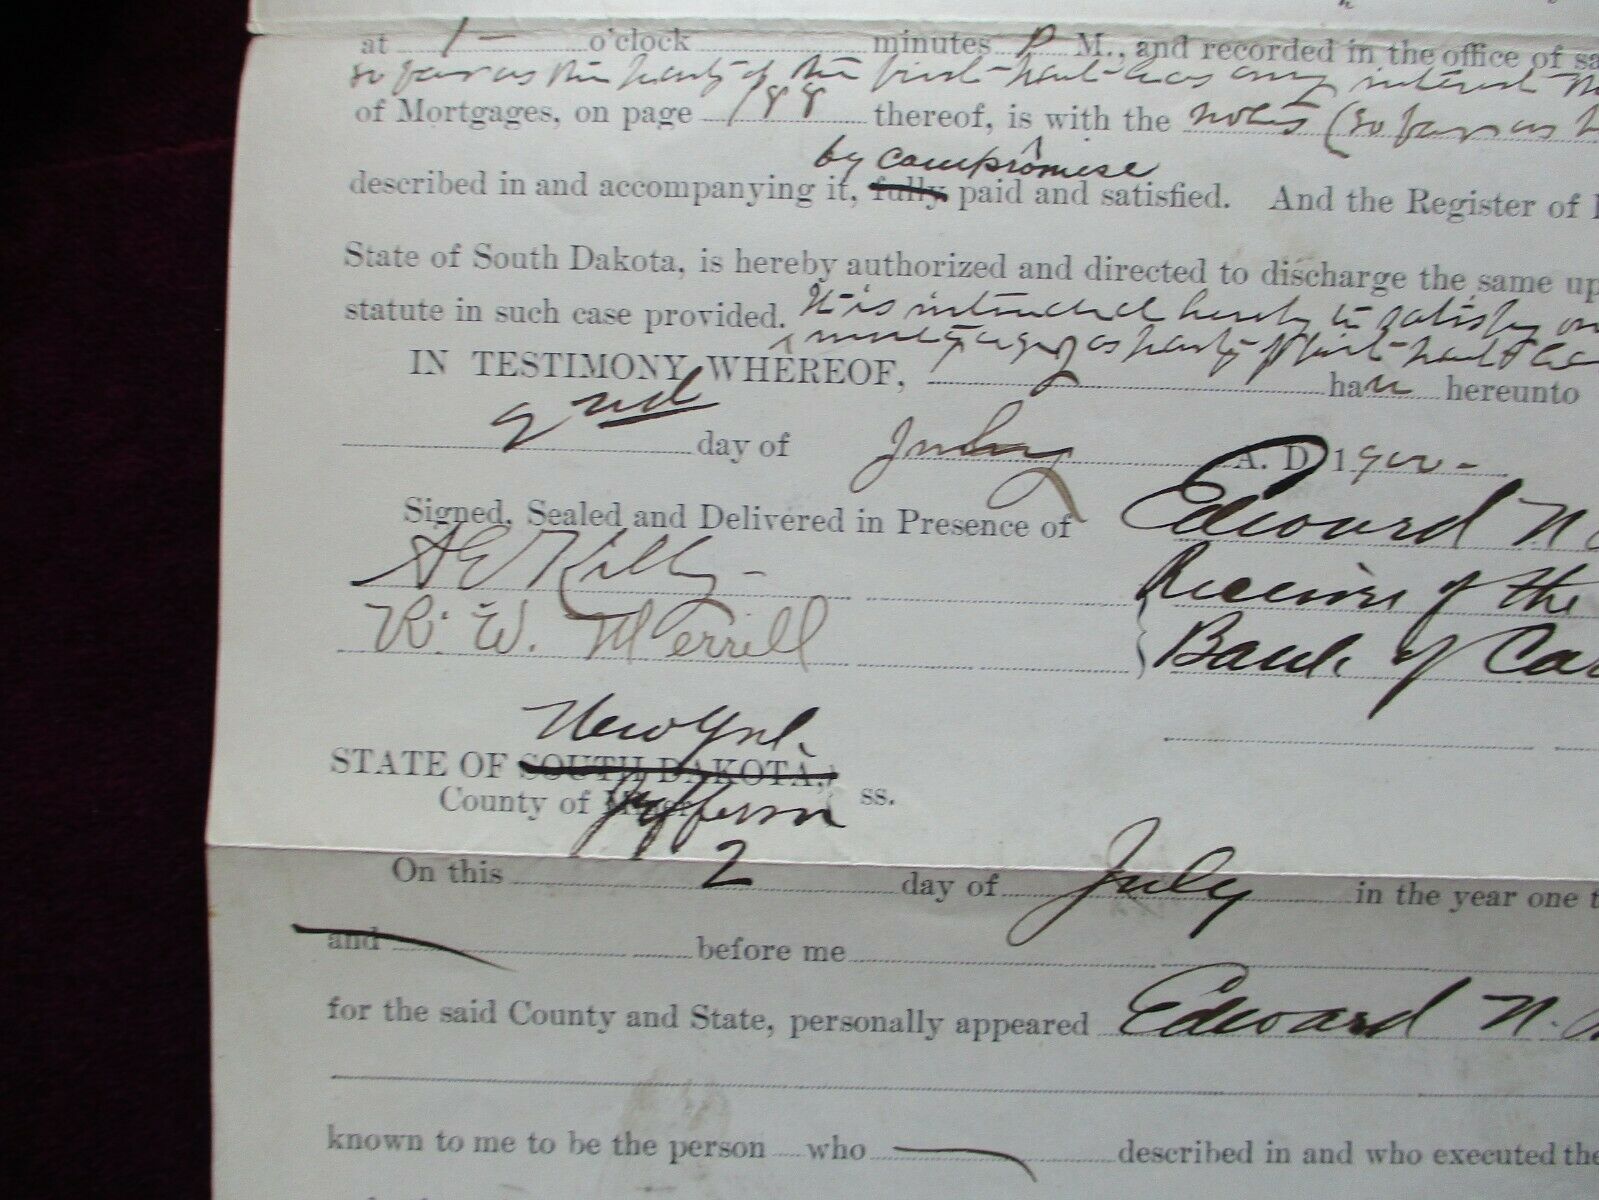 at 1 — o'clock minutes P M., and recorded in the office of sa
so far as the party of the first part has any interest
of Mortgages, on page 188 thereof, is with the notes (so far as
by compromise
described in and accompanying it, fully paid and satisfied. And the Register of
State of South Dakota, is hereby authorized and directed to discharge the same up
statute in such case provided. It is intended hereby to satisfy
mortgage as party of first part
IN TESTIMONY WHEREOF, have hereunto
2nd day of July A. D. 1900 -
Signed, Sealed and Delivered in Presence of Edward N.
A E Kilby - Receiver of the
R. W. Merrill Bank of Ca
New York.
STATE OF SOUTH DAKOTA,
County of Jefferson ss.
On this 2 day of July in the year one t
and before me
for the said County and State, personally appeared Edward N.
known to me to be the person who described in and who executed the